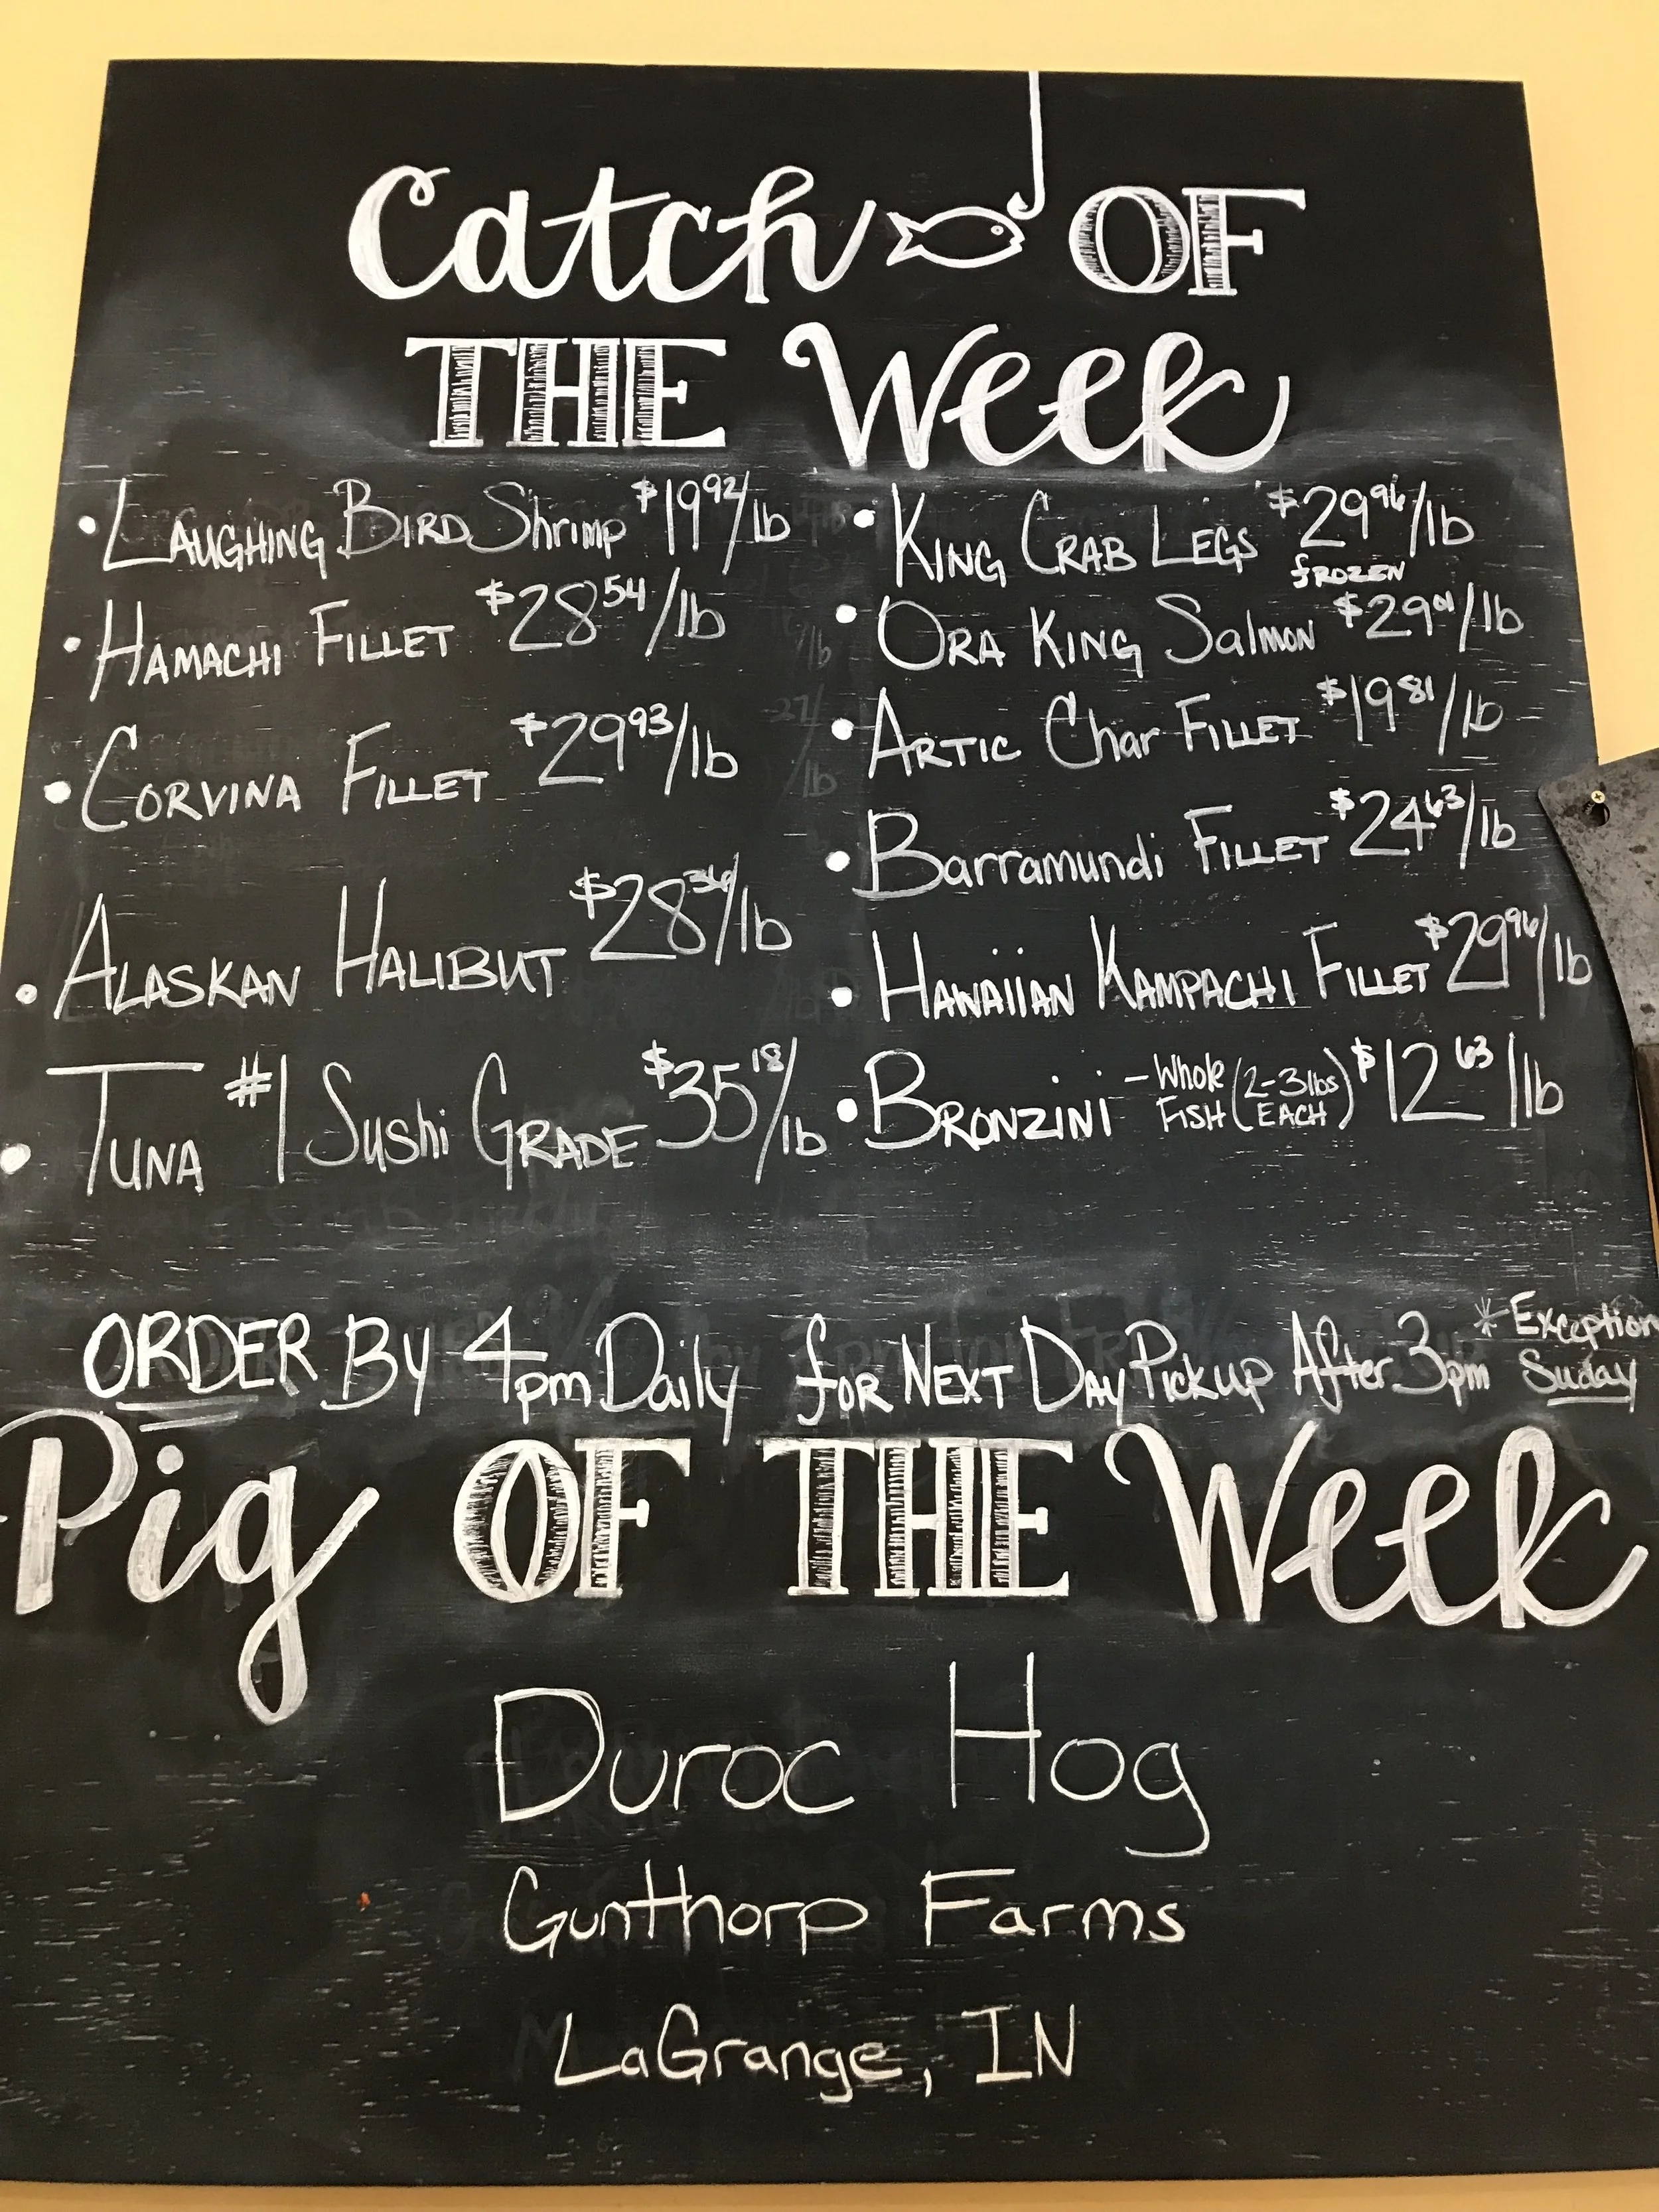 Catch OF
THE Week
• LAUGHING BIRD Shrimp $19.92/lb
• HAMACHI FILLET $28.54/lb
• CORVINA FILLET $29.93/lb
• ALASKAN HALIBUT $28.36/lb
• TUNA #1 Sushi GRADE $35.18/lb
• KING CRAB LEGS $29.96/lb
FROZEN
• ORA KING Salmon $29.01/lb
• ARTIC Char FILLET $19.81/lb
• Barramundi FILLET $24.63/lb
• HAWAIIAN KAMPACHI FILLET $29.96/lb
• BRONZINI - Whole FISH (2-3 lbs EACH) $12.63/lb
ORDER By 4pm Daily for NEXT DAy Pickup After 3pm * Exception Suday
Pig OF THE Week
Duroc Hog
Gunthorp Farms
LaGrange, IN